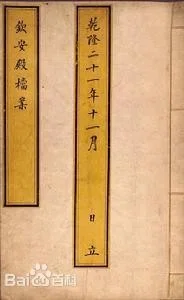 乾隆二十一年十一月 日立
欽安殿檔案
Bai百科